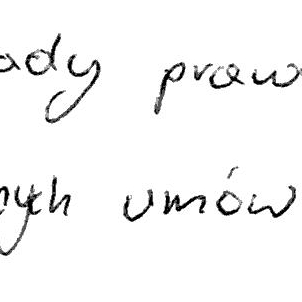 ady praw
nych umów